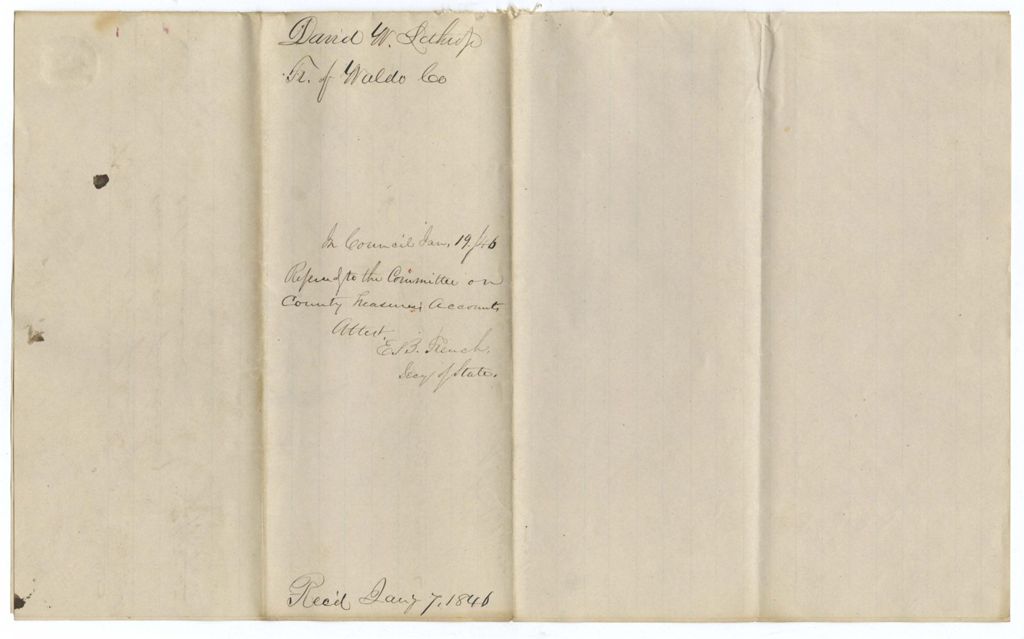 David W. Lothrop
Tr. of Waldo Co
In Council Jan, 19/46
Referred to the Committee on
County Treasurers Accounts
Attest,
E. B. French,
Secy of State.
Rec'd Jany 7, 1846